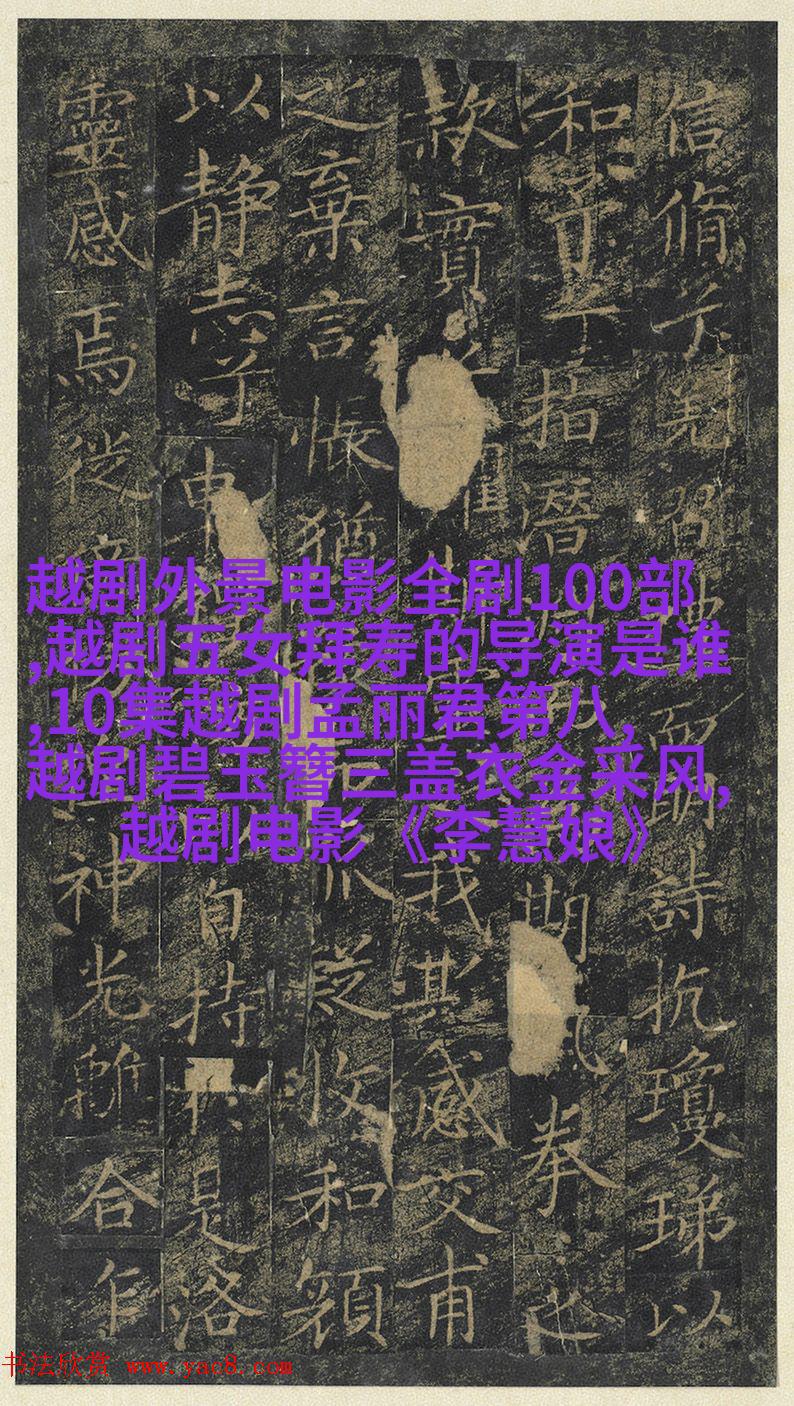 信脩羌習而明詩抗瓊珶以
和予指潛期拳之
款實懼我其感交甫
之棄言悵猶收和顔
以静志子申自持是洛
靈感焉徙神光合乍
越剧外景电影全剧100部
,越剧五女拜寿的导演是谁
,10集越剧孟丽君第八,
越剧碧玉簪三盖衣金采风,
越剧电影《李慧娘》
书法欣赏 www.yac8.com